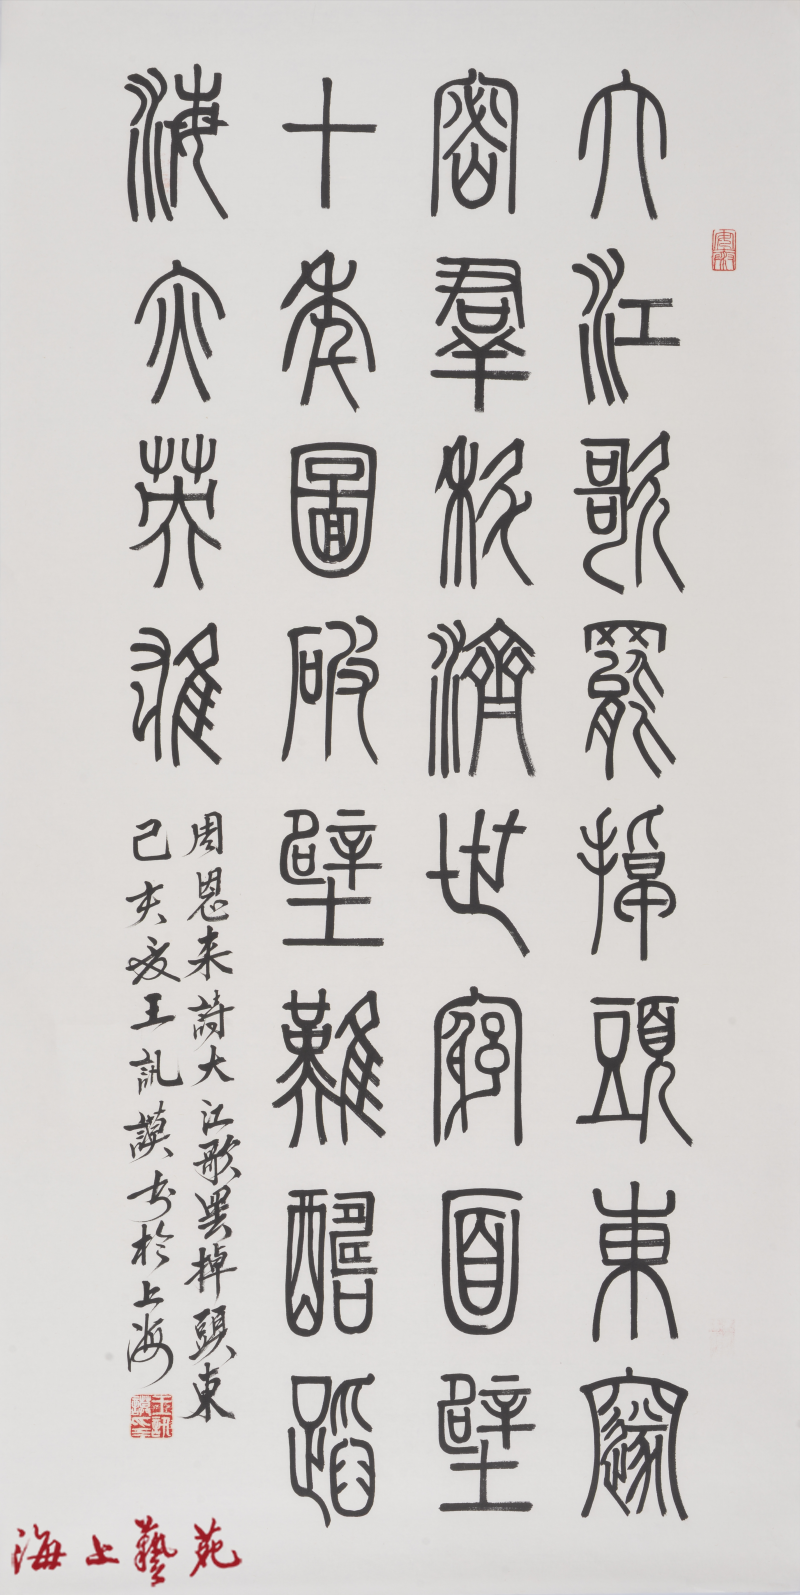 大江歌罷掉頭東邃
密羣科濟世窮面壁
十年圖破壁難醻蹈
海亦英雄
周恩来詩大江歌罷掉頭東
己亥夏王訊謨书於上海
海上藝苑